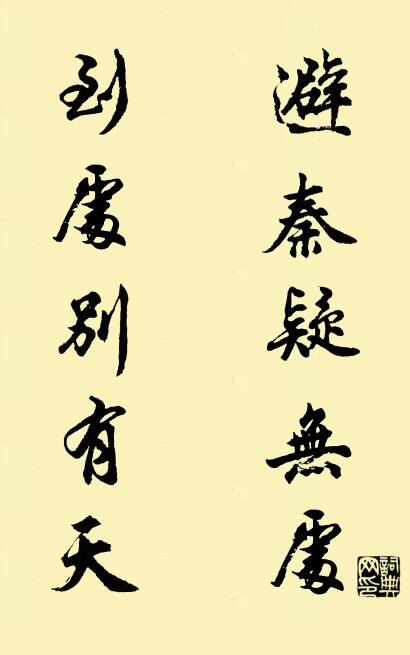 避秦疑無處
到處別有天
詞典网印